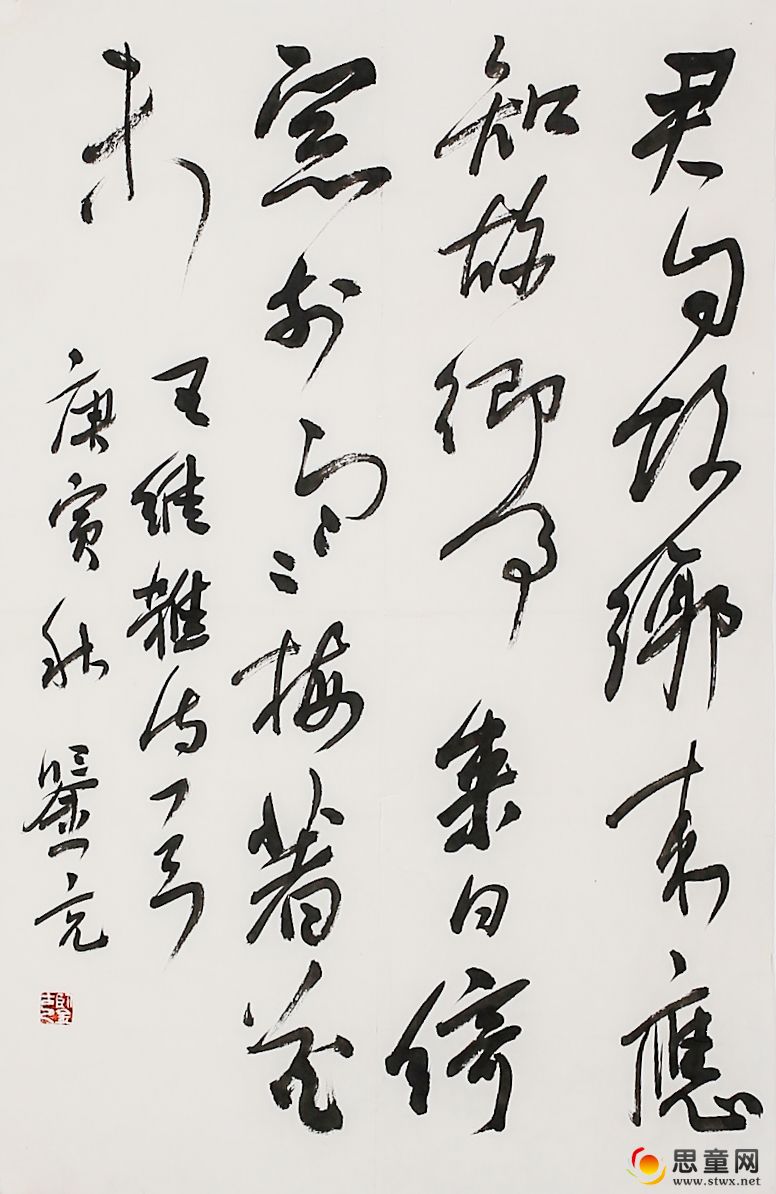 君自故鄉來應
知故鄉事來日綺
窓前寒梅著花
未
王維雜詩一首
庚寅秋
思童网
www.stwx.net